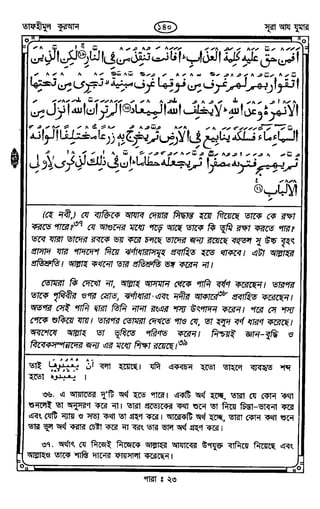 তাফহীমুল কুরআন
১৪০
সূরা আয যুমার
أَفَمَنْ حَقَّ عَلَيْهِ كَلِمَةُ الْعَذَابِ أَفَأَنْتَ تُنْقِذُ مَنْ فِي النَّارِ ﴿١٩﴾ لَكِنِ الَّذِينَ
اتَّقَوْا رَبَّهُمْ لَهُمْ غُرَفٌ مِنْ فَوْقِهَا غُرَفٌ مَبْنِيَّةٌ تَجْرِي مِنْ تَحْتِهَا
الْأَنْهٰرُ وَعْدَ اللَّهِ لَا يُخْلِفُ اللَّهُ الْمِيعَادَ ﴿٢٠﴾ أَلَمْ تَرَ أَنَّ اللَّهَ أَنْزَلَ مِنَ
السَّمَاءِ مَاءً فَسَلَكَهُ يَنَابِيعَ فِي الْأَرْضِ ثُمَّ يُخْرِجُ بِهِ زَرْعًا مُخْتَلِفًا أَلْوَانُهُ
ثُمَّ يَهِيجُ فَتَرٰىهُ مُصْفَرًّا ثُمَّ يَجْعَلُهُ حُطَامًا إِنَّ فِي ذَلِكَ لَذِكْرَى لِأُولِي
الْأَلْبَابِ ﴿٢١﴾
(হে নবী,) যে ব্যক্তিকে আযাব দেয়ার সিদ্ধান্ত হয়ে গিয়েছে তাকে কে রক্ষা
করতে পারে?৩৭ যে আগুনের মধ্যে পড়ে আছে তাকে কি তুমি রক্ষা করতে পার?
তবে যারা তাদের রবকে ভয় করে চলছে তাদের জন্য রয়েছে বহুতল সু উচ্চ বৃহৎ
প্রাসাদ যার পাদদেশ দিয়ে ঝর্ণাধারাসমূহ প্রবাহিত হতে থাকবে। এটা আল্লাহর
প্রতিশ্রুতি। আল্লাহ কখনো তার প্রতিশ্রুতি ভঙ্গ করেন না।
তোমরা কি দেখো না, আল্লাহ আসমান থেকে পানি বর্ষণ করেছেন। তারপর
তাকে পৃথিবীর ওপর স্রোত, ঝর্ণাধারা এবং নদীর আকারে৩৮ প্রবাহিত করেছেন।
অতপর সেই পানি দ্বারা তিনি নানা রংএর শস্য উৎপাদন করেন। পরে সে শস্য
পেকে শুকিয়ে যায়। তারপর তোমরা দেখতে পাও যে, তা হলুদ বর্ণ ধারণ করেছে।
অবশেষে আল্লাহ তা ভূষিতে পরিণত করেন। নিশ্চয়ই জ্ঞান-বুদ্ধি ও
বিবেকসম্পন্নদের জন্য এর মধ্যে শিক্ষা রয়েছে।৩৯
তাই أن يعبدوها বলা হয়েছে। যদি একবচন হতো তাহলে ব্যবহৃত শব্দ
হতো يعبدوه ।
৩৬. এ আয়াতের দু'টি অর্থ হতে পারে। একটি অর্থ হচ্ছে, তারা যে কোন কথা
শুনলেই তা অনুসরণ করে না। তারা প্রত্যেকের কথা শুনে তা নিয়ে চিন্তা-ভাবনা করে
এবং যেটি ন্যায় ও সত্য কথা তা গ্রহণ করে। আরেকটি অর্থ হচ্ছে, তারা কোন কথা শুনে
তার ভুল অর্থ করার চেষ্টা করে না বরং তার ভাল অর্থ গ্রহণ করে।
৩৭. অর্থাৎ যে নিজেই নিজেকে আল্লাহর আযাবের উপযুক্ত বানিয়ে নিয়েছে এবং
আল্লাহও তাকে শাস্তি দানের ফায়সালা করেছেন।
পারা : ২৩